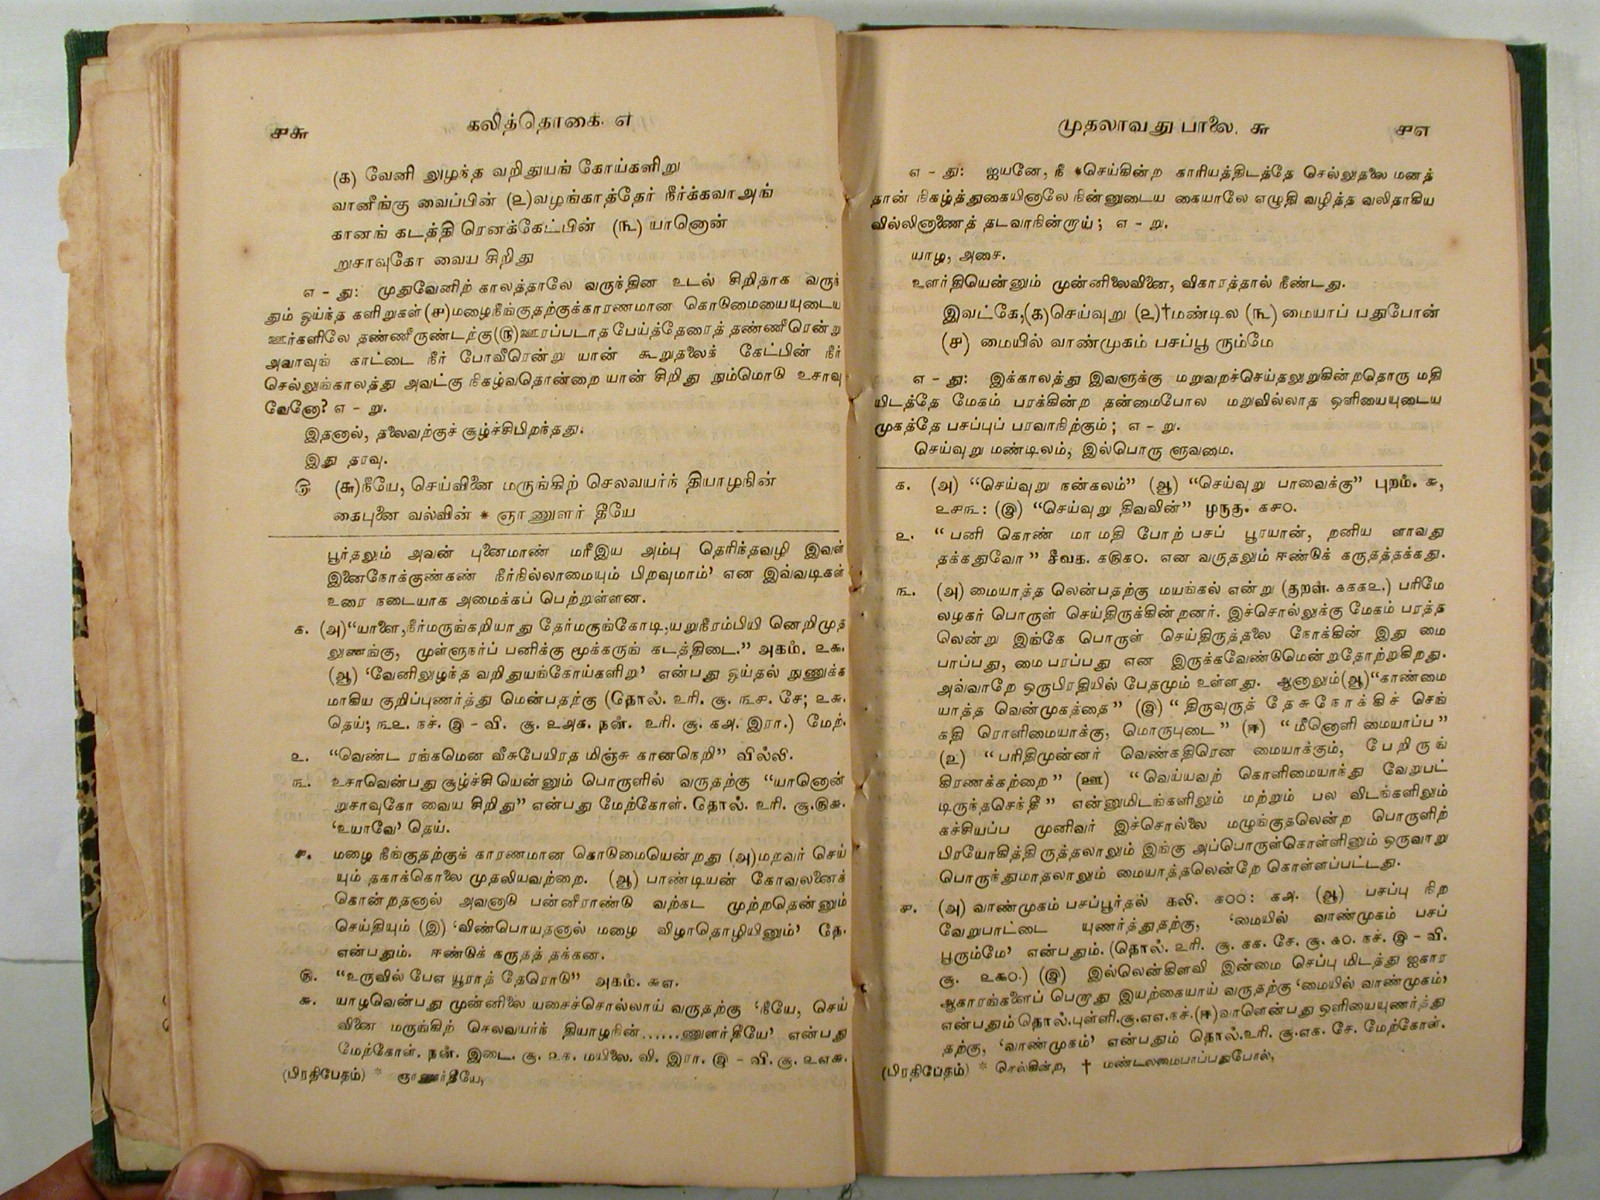 ௪௬ கலித்தொகை. ௭
(க) வேனி லுழந்த வறிதுயங் கோய்களிறு
வானீங்கு வைப்பின் (உ)வழங்காத்தேர் நீர்க்கவாஅங்
கானங் கடத்தி ரெனக்கேட்பின் (௩) யானொன்
றுசாவுகோ வைய சிறிது
எ - து: முதுவேனிற் காலத்தாலே வருந்தின உடல் சிறிதாக வருந்
தும் ஓய்ந்த களிறுகள்(௪)மழைநீங்குதற்குக்காரணமான கொடுமையையுடைய
ஊர்களிலே தண்ணீருண்டற்கு(௫)ஊரப்படாத பேய்த்தேரைத் தண்ணீரென்று
அவாவுங் காட்டை நீர் போவீரென்று யான் கூறுதலைக் கேட்பின் நீர்
செல்லுங்காலத்து அவட்கு நிகழ்வதொன்றை யான் சிறிது நும்மொடு உசாவு
வேனோ? எ - று.
இதனால், தலைவற்குச் சூழ்ச்சிபிறந்தது.
இது தரவு.
௫ (௬)நீயே, செய்வினை மருங்கிற் செலவயர்ந் தியாழநின்
கைபுனை வல்வின் * ஞாணுளர் தீயே
பூர்தலும் அவன் புனைமாண் மரீஇய அம்பு தெரிந்தவழி இவள்
இனைநோக்குண்கண் நீர்நில்லாமையும் பிறவுமாம்’ என இவ்வடிகள்
உரை நடையாக அமைக்கப் பெற்றுள்ளன.
க. (அ)“யானை,நீர்மருங்கறியாது தேர்மருங்கோடி,யறுநீரம்பியி னெறிமுத
லுணங்கு, முள்ளுநர்ப் பனிக்கு மூக்கருங் கடத்திடை.” அகம். ௨௯.
(ஆ) ‘வேனிலுழந்த வறிதுயங்கோய்களிறு’ என்பது ஓய்தல் நுணுக்க
மாகிய குறிப்புணர்த்து மென்பதற்கு (தொல். உரி. சூ. ௩௪. சே; ௨௬.
தெய்; ௩௨. நச். இ - வி. சூ. ௨௮௧. நன். உரி. சூ. ௧௮. இரா.) மேற்.
உ. “வெண்ட ரங்கமென வீசுபேயிரத மிஞ்சு கானநெறி” வில்லி.
௩. உசாவென்பது சூழ்ச்சியென்னும் பொருளில் வருதற்கு “யானொன்
றுசாவுகோ வைய சிறிது” என்பது மேற்கோள். தொல். உரி. சூ.௭௪.
‘உயாவே’ தெய்.
௪. மழை நீங்குதற்குக் காரணமான கொடுமையென்றது (அ)மறவர் செய்
யும் தகாக்கொலை முதலியவற்றை. (ஆ) பாண்டியன் கோவலனைக்
கொன்றதனால் அவனாடு பன்னீராண்டு வற்கட முற்றதென்னும்
செய்தியும் (இ) ‘விண்பொயதனால் மழை விழாதொழியினும்’ தே.
என்பதும். ஈண்டுக் கருதத் தக்கன.
௫. “உருவில் பேஎ யூராத் தேரொடு” அகம். ௬௭.
௬. யாழவென்பது முன்னிலை யசைச்சொல்லாய் வருதற்கு ‘நீயே, செய்
வினை மருங்கிற் செலவயர்ந் தியாழநின்......ணுளர்தீயே’ என்பது
மேற்கோள். நன். இடை. சூ. ௨௧. மயிலை. வி. இரா. இ - வி. சூ. ௨௭௯.
(பிரதிபேதம்) *
முதலாவது பாலை. ௬ ௪௭
எ - து: ஐயனே, நீ *செய்கின்ற காரியத்திடத்தே செல்லுதலை மனத்
தான் நிகழ்த்துகையினாலே நின்னுடைய கையாலே எழுதி வழித்த வலிதாகிய
வில்லினாணைத் தடவாநின்றாய் ; எ - று.
யாழ, அசை.
உளர்தியென்னும் முன்னிலைவினை, விகாரத்தால் நீண்டது.
இவட்கே,(க)செய்வுறு (உ)†மண்டில (௩) மையாப் பதுபோன்
(௪) மையில் வாண்முகம் பசப்பூ ரும்மே
எ - து: இக்காலத்து இவளுக்கு மறுவறச்செய்தலுறுகின்றதொரு மதி
யிடத்தே மேகம் பரக்கின்ற தன்மைபோல மறுவில்லாத ஒளியையுடைய
முகத்தே பசப்புப் பரவாநிற்கும் ; எ - று.
செய்வுறு மண்டிலம், இல்பொரு ளுவமை.
க. (அ) “செய்வுறு நன்கலம்” (ஆ) “செய்வுறு பாவைக்கு” புறம். ௬,
௨௪௩: (இ) “செய்வுறு திவவின்” முருகு. ௧௪௦.
உ. “ பனி கொண் மா மதி போற் பசப் பூரயான், றனிய ளாவது
தக்கதுவோ ” சீவக. ௧௫௧௦. என வருதலும் ஈண்டுக் கருதத்தக்கது.
௩. (அ) மையாத்த லென்பதற்கு மயங்கல் என்று (குறள். ௧௧௧௨.) பரிமே
லழகர் பொருள் செய்திருக்கின்றனர். இச்சொல்லுக்கு மேகம் பரத்த
லென்று இங்கே பொருள் செய்திருத்தலை நோக்கின் இது மை
பாப்பது, மை பரப்பது என இருக்கவேண்டுமென்றுதோற்றுகிறது.
அவ்வாறே ஒருபிரதியில் பேதமும் உள்ளது. ஆனாலும்(ஆ)“காண்மை
யாத்த வென்முகத்தை” (இ) “ திருவுருத் தேசுநோக்கிச் செங்
கதி ரொளிமையாக்கு, மொருபுடை” (ஈ) “ மீனொளி மையாப்ப ”
(உ) “ பரிதிமுன்னர் வெண்கதிரென மையாக்கும், பேறிருங்
கிரணக்கற்றை” (ஊ) “வெய்யவற் கொளிமையாந்து வேறுபட்
டிருந்தசெந்தீ ” என்னுமிடங்களிலும் மற்றும் பல விடங்களிலும்
கச்சியப்ப முனிவர் இச்சொல்லை மழுங்குதலென்ற பொருளிற்
பிரயோகித்திருத்தலாலும் இங்கு அப்பொருள்கொள்ளினும் ஒருவாறு
பொருந்துமாதலாலும் மையாத்தலென்றே கொள்ளப்பட்டது.
௪. (அ) வாண்முகம் பசப்பூர்தல் கலி. ௧௦௦: ௧௮. (ஆ) பசப்பு நிற
வேறுபாட்டை யுணர்த்துதற்கு, ‘மையில் வாண்முகம் பசப்
பூரும்மே’ என்பதும். (தொல். உரி. சூ. ௧௧. சே. சூ. ௬௦. நச். இ - வி.
சூ. ௨௯௦.) (இ) இல்லென்கிளவி இன்மை செப்பு மிடத்து ஐகார
ஆகாரங்களைப் பெறாது இயற்கையாய் வருதற்கு ‘மையில் வாண்முகம்’
என்பதும் தொல்.புள்ளி.சூ.௭௭.நச்.(ஈ)வாளென்பது ஒளியையுணர்த்து
தற்கு, ‘வாண்முகம்’ என்பதும் தொல்.உரி. சூ.௭௧. சே. மேற்கோள்.
(பிரதிபேதம்) * செல்கின்ற, † மண்டலமைபாப்பதுபோல்,